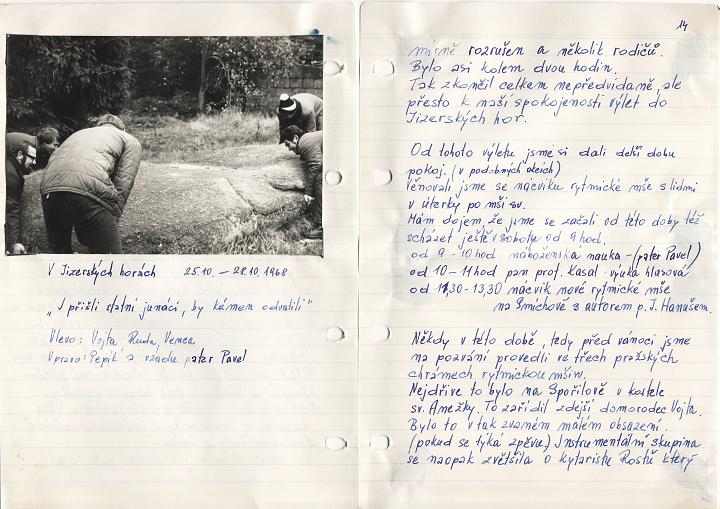 V Jizerských horách 25.10. – 28.10.1968
„I přišli statní junáci, by kámen odvalili"
Vlevo: Vojta Ruda, Venca
Vpravo: Pepík a vzadu pater Pavel
14
mírně rozrušen a několik rodičů.
Bylo asi kolem dvou hodin.
Tak zkončil celkem nepředvídaně, ale
přesto k naší spokojenosti výlet do
Jizerských hor.
Od tohoto výletu jsme si dali delší dobu
pokoj. (v podobných akcích)
Věnovali jsme se nacviku rytmické mše s lidmi
v úterky po mši sv.
Mám dojem, že jsme se začali od této doby též
scházet ještě v sobotu od 9 hod.
od 9 - 10 hod náboženská nauka - (pater Pavel)
od 10 – 11 hod pan prof. Kasal - výuka hlasová
od 11,30 - 13,30 nacvik nové rytmické mše
na Smíchově s autorem p. J. Hanušem.
Někdy v této době, tedy před vánoci jsme
na pozvání provedli ve třech pražských
chrámech rytmickou mši
Nejdříve to bylo na Spořilově v kostele
sv. Anežky. To zařídil zdejší domorodec Vojta.
Bylo to v tak zvaném malém obsazení.
(pokud se týká zpěvu.) Instrumentální skupina
se naopak zvětšila o kytaristu Rostů který